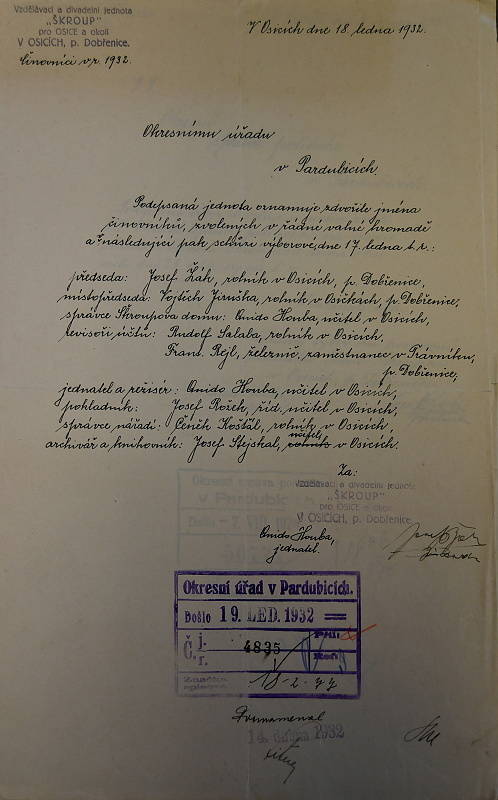 Vzdělávací a divadelní jednota
„ŠKROUP"
pro OSICE a okolí
V OSICÍCH, p. Dobřenice.
Činovníci v r. 1932.
V Osicích dne 18. ledna 1932.
Okresnímu úřadu
v Pardubicích.
Podepsaná jednota oznamuje zdvořile jména
činovníků, zvolených v řádné valné hromadě
a následující pak schůzi výborové, dne 17. ledna t. r.:
předseda: Josef Žák, rolník v Osicích, p. Dobřenice,
místopředseda: Vojtěch Jiruška, rolník v Osičkách, p. Dobřenice,
správce Škroupova domu: Quido Houba, učitel v Osicích,
revisoři účtů: Rudolf Salaba, rolník v Osicích,
Frant. Rejl, železnič. zaměstnanec v Trávníku,
p. Dobřenice,
jednatel a režisér: Quido Houba, učitel v Osicích,
pokladník: Josef Rožek, říd. učitel v Osicích,
správce nářadí: Čeněk Košťál, rolník v Osicích,
archivář a knihovník: Josef Stejskal, rolník učitel v Osicích.
Za:
Vzdělávací a divadelní jednota
„ŠKROUP"
pro OSICE a okolí
V OSICÍCH, p. Dobřenice
Quido Houba,
jednatel.
Okresní úřad v Pardubicích.
Došlo 19. LED. 1932
Č. j. 4835
r.
18-2-44
14. dubna 1932